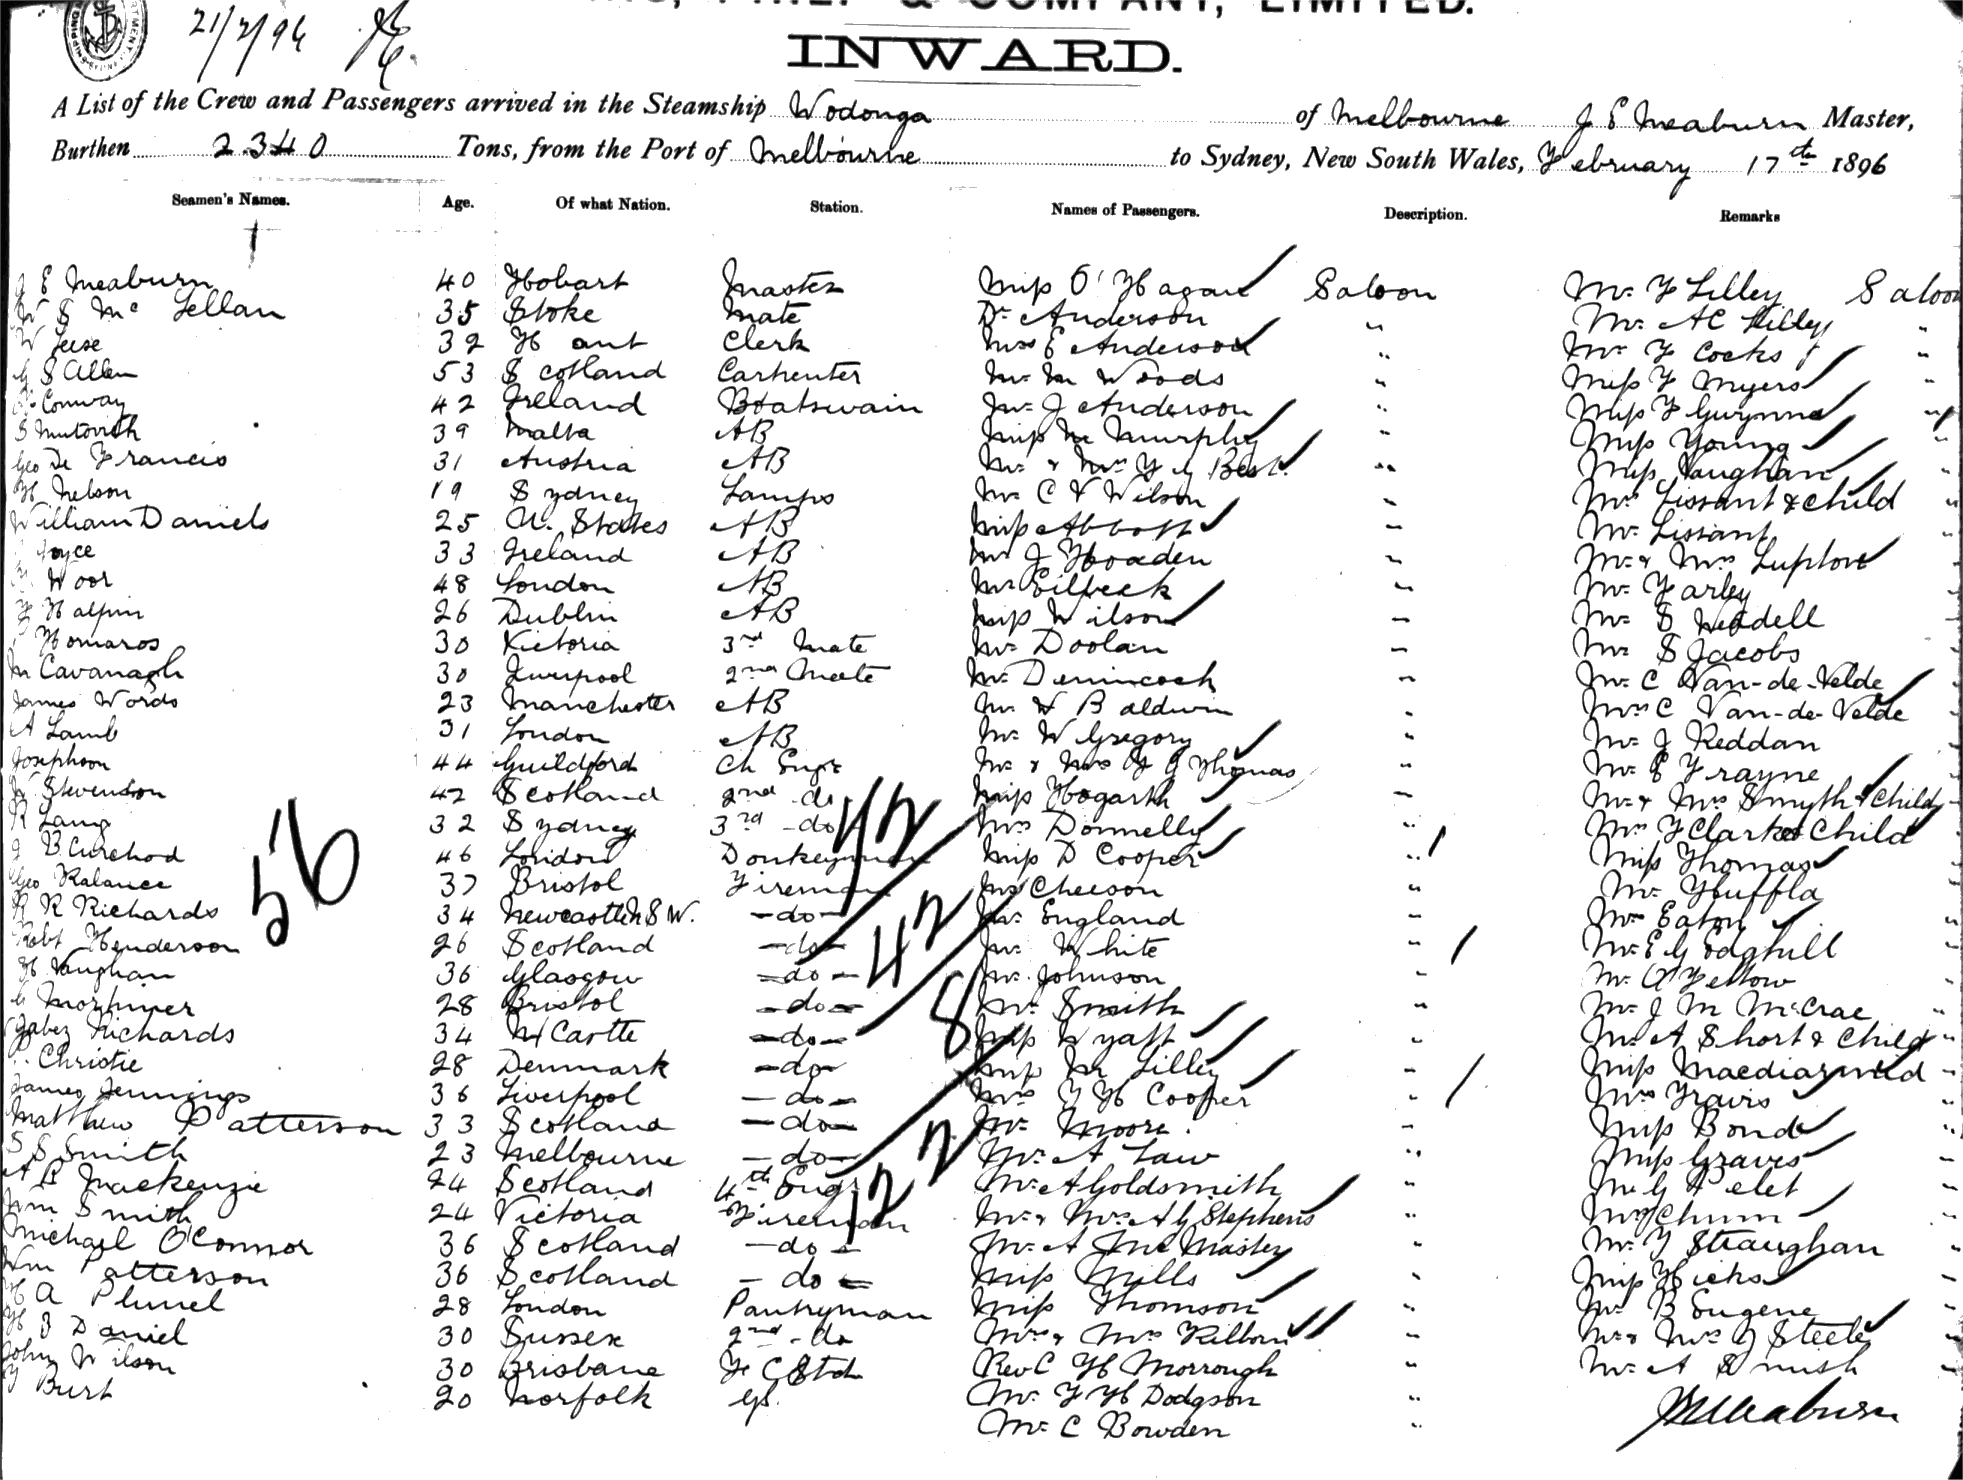 21/2/96
& COMPANY, LIMITED.
INWARD.
A List of the Crew and Passengers arrived in the Steamship Wodonga of Melbourne J E Meaburn Master,
Burthen 2340 Tons, from the Port of Melbourne to Sydney, New South Wales, February 17th 1896
Seamen's Names. Age. Of what Nation. Station. Names of Passengers. Description. Remarks
J E Meaburn 40 Hobart Master Miss O'Hagan Saloon Mr F Lilley Saloon
W S Mc Lellan 35 Stoke Mate Dr Anderson " Mr AC Lilley "
W Jeese 32 Clerk Mrs E Anderson " Mr F Cocks "
G S Allen 53 Scotland Carpenter Mr M Woods " Miss F Myers
Conway 42 Ireland Boatswain Mr J Anderson " Miss F Gwynne "
S 39 Malta AB Miss M Murphy " Miss Young "
Geo De Francis 31 Austria AB Mr & Mrs Best " Miss Vaughan "
H Nelson 19 Sydney Lamps Mr C V Wilson " Mrs Lissant & Child "
William Daniels 25 U. States AB Miss Abbott " Mr Lissant "
Joyce 33 Ireland AB Mr J Hoaden " Mr & Mrs Lupton "
Woor 48 London AB Mr Eilbeck " Mr Farley "
Halpin 26 Dublin AB Miss Wilson " Mr S Weddell "
Homaros 30 Victoria 3rd Mate Mr Doolan " Mr S Jacobs "
M Cavanagh 30 Liverpool 2nd Mate Mr " Mr C Van-de-Velde "
James Words 23 Manchester AB Mr H Baldwin " Mrs C Van-de-Velde "
A Lamb 31 London AB Mr W Gregory " Mr J Reddan "
Josephson 44 Guildford Ch Engr Mr & Mrs Thomas " Mr E Frayne "
Stevenson 42 Scotland 2nd do Miss Hogarth " Mr & Mrs Smyth & Child "
R Lang 32 Sydney 3rd -do- Mrs Donnelly Mrs F Clark & Child
J B Curchod 46 London Donkeyman Miss D Cooper " Miss Thomas "
Geo Ralance 37 Bristol Fireman Mr Cheeson " Mr "
R R Richards 34 Newcastle N S W. -do- Mr England " Mrs Eaton "
Robt Henderson 26 Scotland -do- Mr White " Mr E G Odghill "
H Vaughan 36 Glasgow -do- Mr Johnson " Mr O Fellow "
G Mortimer 28 Bristol -do- Mr Smith " Mr J M McCrae "
Jabez Richards 34 N Castle -do- Miss Wyatt " Mr A Short & Child "
Christie 28 Denmark -do- Miss M Lilley " Miss "
James Jennings 36 Liverpool -do- Mrs F H Cooper " Mrs Travis "
Matthew Patterson 33 Scotland -do- Mr Moore. " Miss Bond "
S S Smith 23 Melbourne -do- Mr A Law " Miss Graves "
A R Mackenzie 24 Scotland 4th Engr Mr A Goldsmith Mr G Pelet "
Wm Smith 24 Victoria Fireman Mr & Mrs A G Stephens " Mrs Chunn "
Michael O'Connor 36 Scotland -do- Mr A J McMaster " Mr F Straughan "
Wm Patterson 36 Scotland -do- Miss Mills " Miss Hicks "
H A Plunel 28 London Pantryman Miss Thomson " Mr B Eugene "
H J Daniel 30 Sussex 2nd -do Mr & Mrs Kilborn " Mr & Mrs J Steele "
John Wilson 30 Brisbane F C Std Rev C H Morrough " Mr A Smish "
F Burt 20 Norfolk Mr F H Dodgson "
Mr C Bowden "
J E Meaburn
56
42
42
8
122